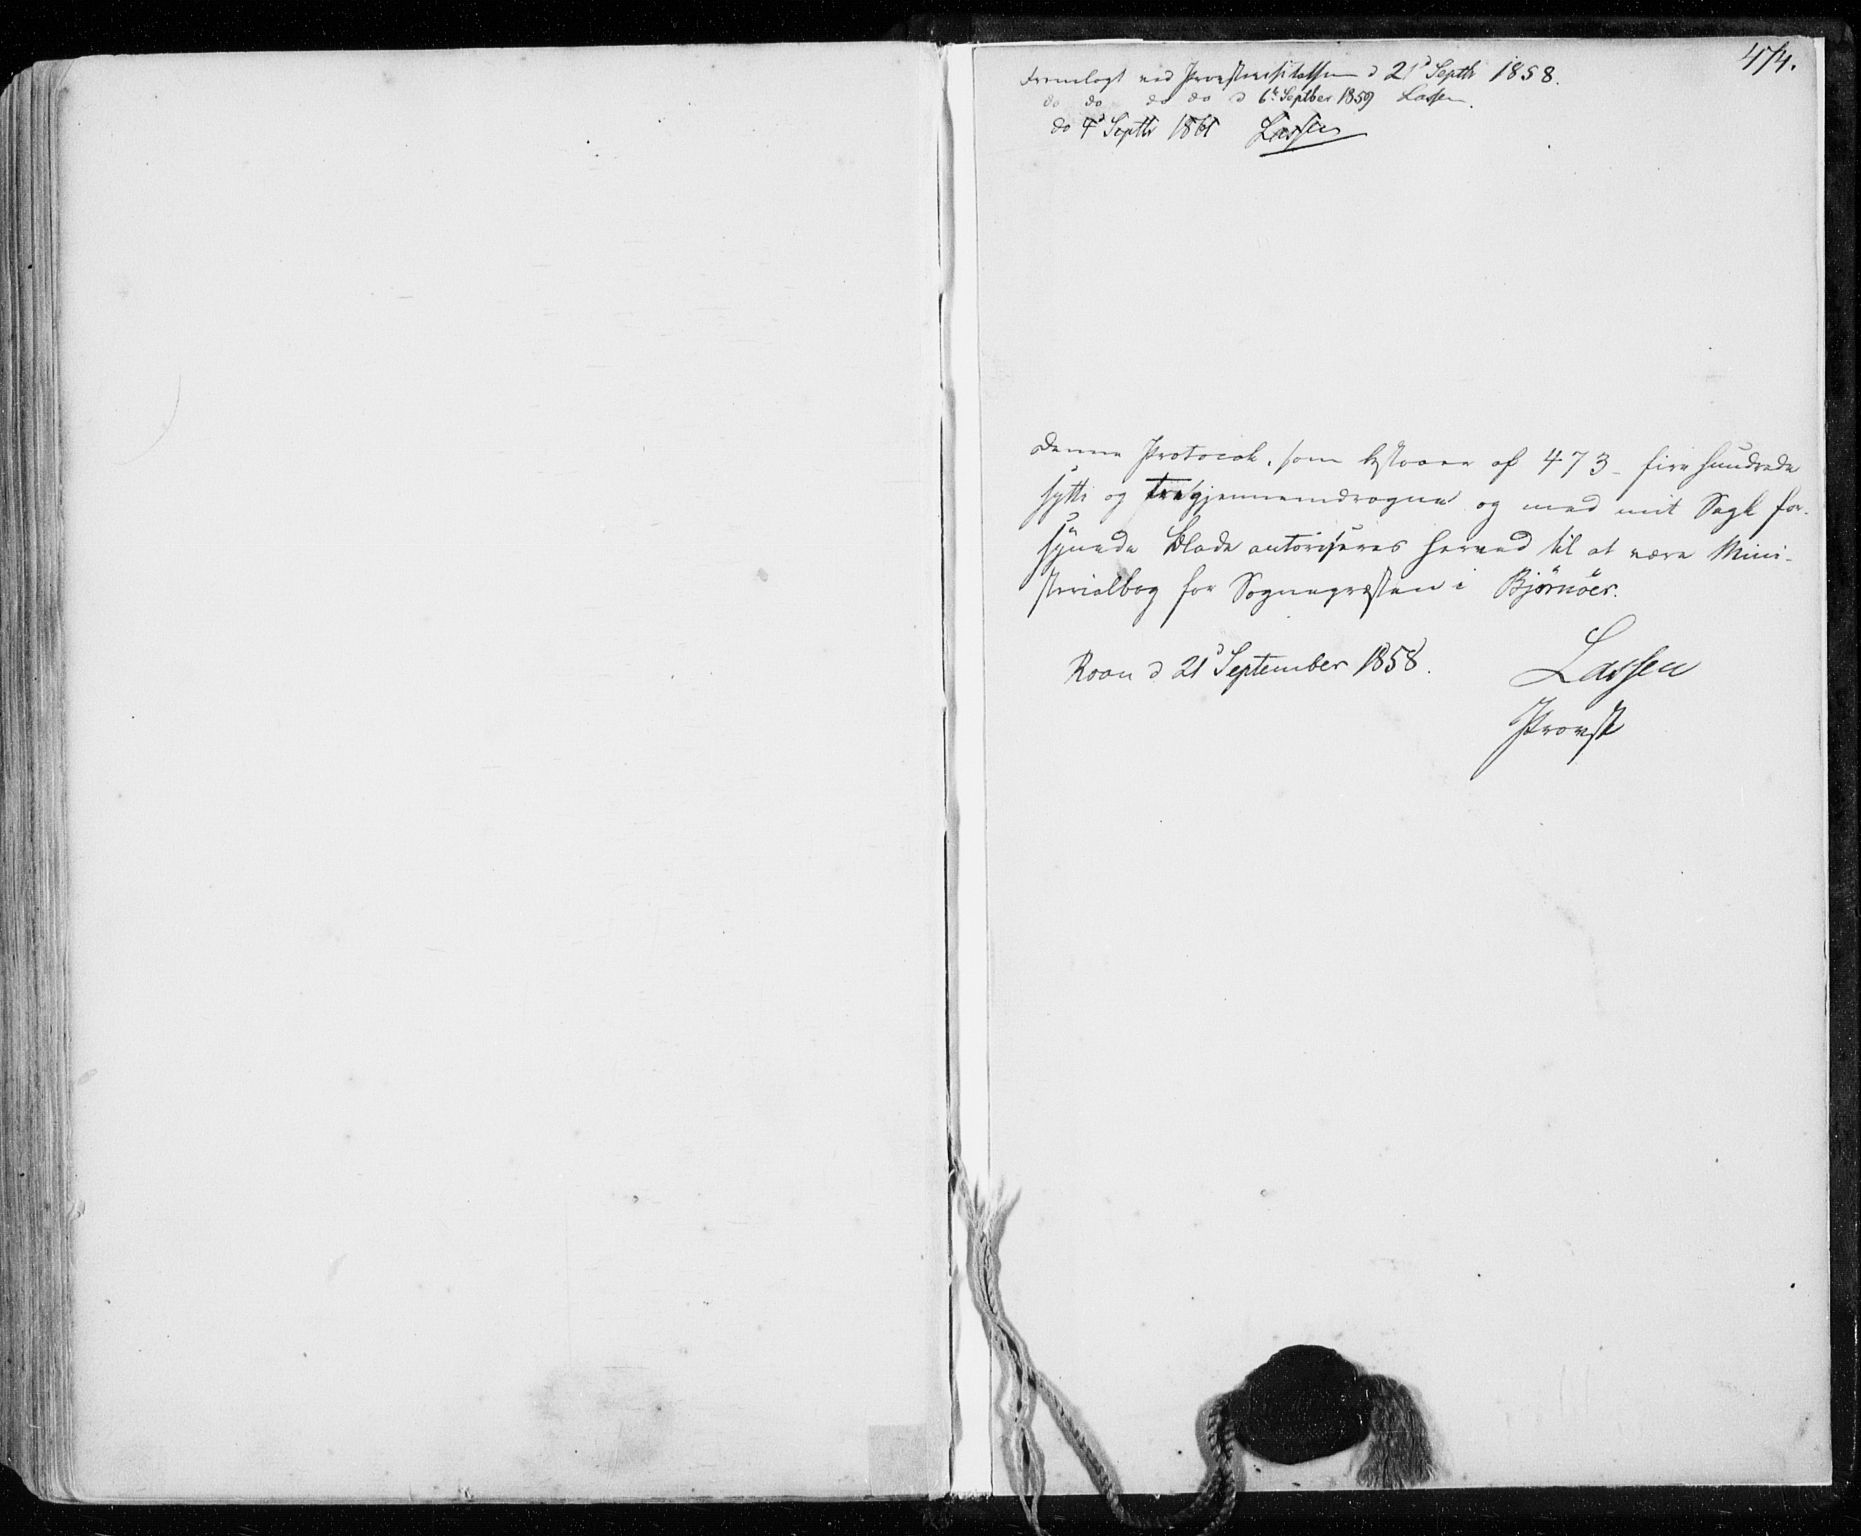 474.
Fremlagt ved Provstevisitatsen d 21d Septbr 1858.
do do do do d 6te Septber 1859 Lassen.
do 4d Septbr 1861 Lassen
Denne Protocol, som bestaaer af 473 – fire hundrede
sytti og tre gjennemdragne og med mit Segl for-
synede Blade autoriseres herved til at være Mini-
sterialbog for Sognepræsten i Bjørnöer.
Roan d 21d September 1858.
Lassen
Provst